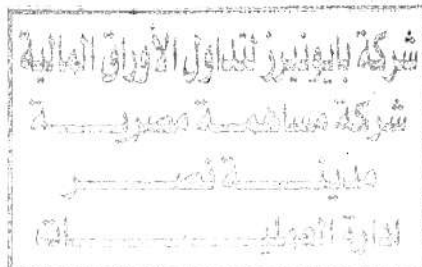 شركة بايونيرز لتداول الأوراق المالية
شركة مساهمة مصرية
مدينة نصر
إدارة العمليات